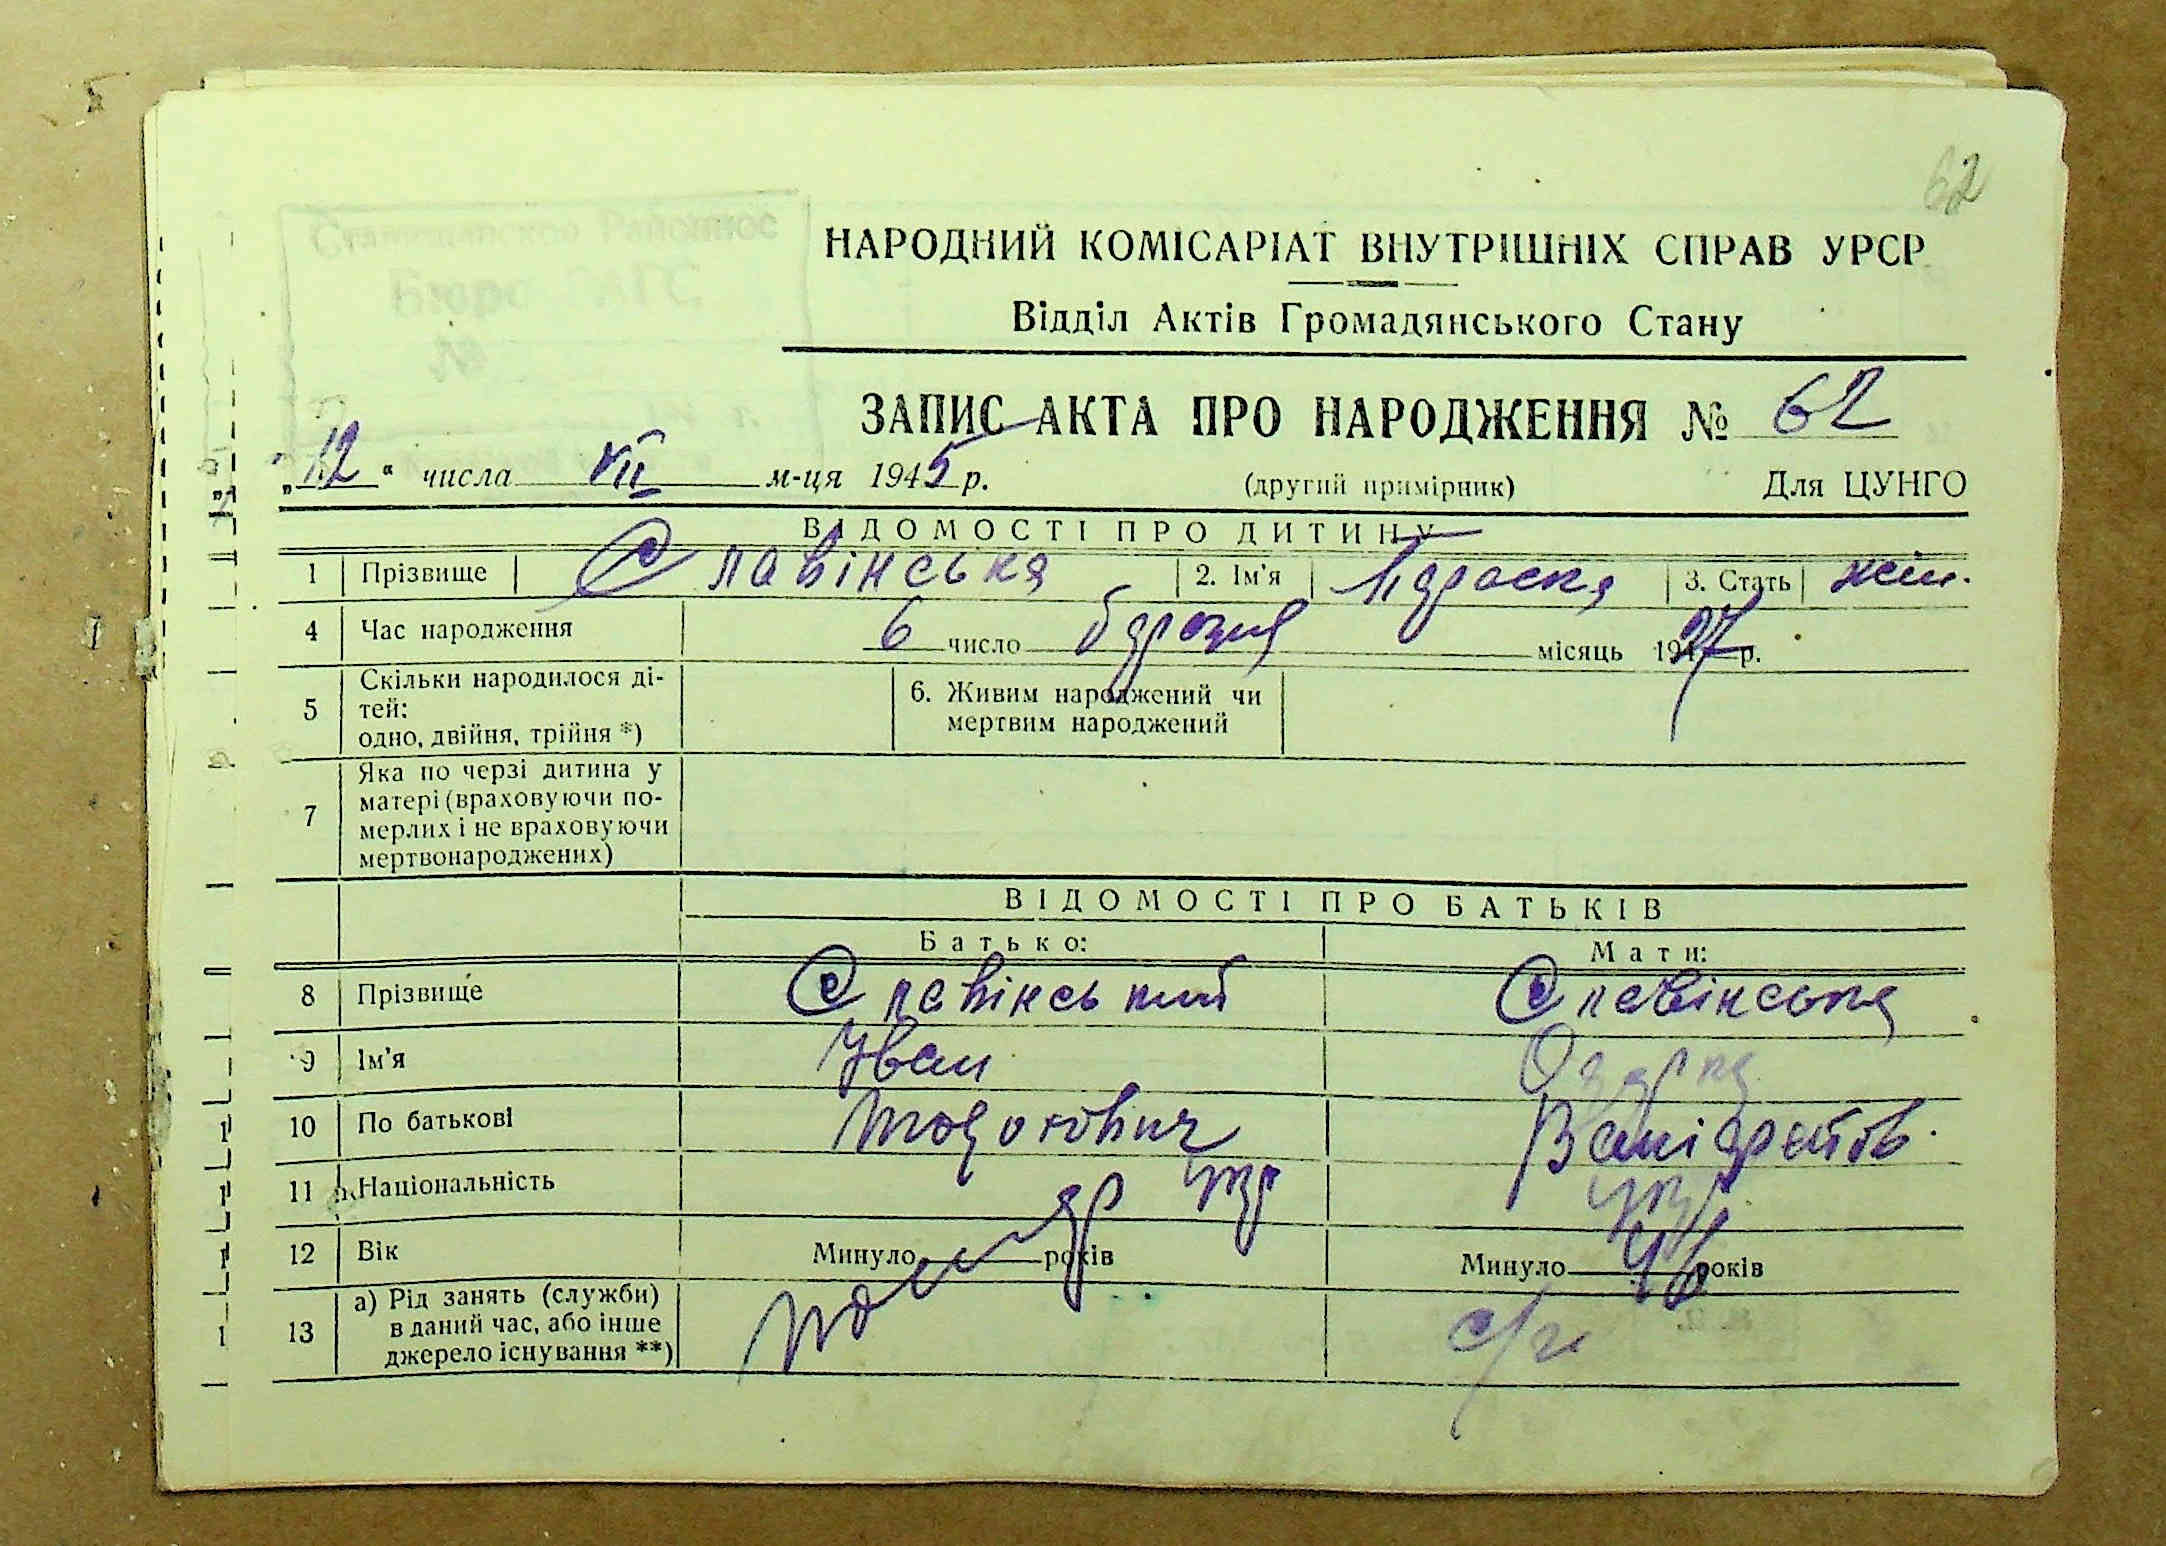 62
НАРОДНИЙ КОМІСАРІАТ ВНУТРІШНІХ СПРАВ УРСР
Відділ Актів Громадянського Стану
ЗАПИС АКТА ПРО НАРОДЖЕННЯ № 62
„12“ числа VII м-ця 1945 р. (другий примірник) Для ЦУНГО
ВІДОМОСТІ ПРО ДИТИНУ
1 Прізвище Славінська 2. Ім'я Параска 3. Стать жін.
4 Час народження 6 число місяць 1927 р.
5 Скільки народилося ді-
тей:
одно, двійня, трійня *)
6. Живим народжений чи
мертвим народжений
7 Яка по черзі дитина у
матері (враховуючи по-
мерлих і не враховуючи
мертвонароджених)
ВІДОМОСТІ ПРО БАТЬКІВ
Батько: Мати:
8 Прізвище Славінський Славінська
9 Ім'я Іван
10 По батькові
11 Національність укр укр
12 Вік Минуло років Минуло 46 років
13 а) Рід занять (служби)
в даний час, або інше
джерело існування **)
помер с/г